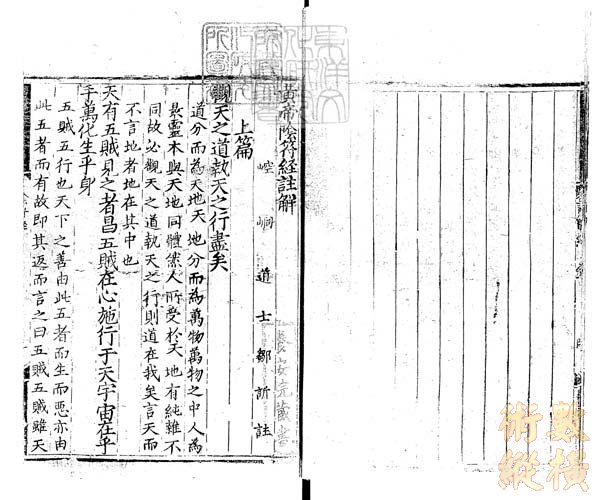 黃帝陰符經註解
崆峒道士鄒訢註
上篇
觀天之道執天之行盡矣
道分而為天地天地分而為萬物萬物之中人為
最靈本與天地同體然人所受於天地有純雜不
同故必觀天之道執天之行則道在我矣言天而
不言地者地在其中也
天有五賊見之者昌五賊在心施行于天宇宙在乎
手萬化生乎身
五賊五行也天下之善由此五者而生而惡亦由
此五者而有故即其返而言之曰五賊五賊雖天
數術縱橫